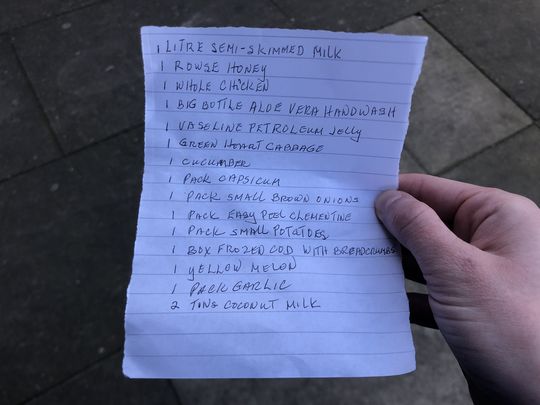 1 LITRE SEMI-SKIMMED MILK
1 ROWSE HONEY
1 WHOLE CHICKEN
1 BIG BOTTLE ALOE VERA HANDWASH
1 VASELINE PETROLEUM JELLY
1 GREEN HEART CABBAGE
1 CUCUMBER
1 PACK CAPSICUM
1 PACK SMALL BROWN ONIONS
1 PACK EASY PEEL CLEMENTINE
1 PACK SMALL POTATOES
1 BOX FROZEN COD WITH BREADCRUMBS
1 YELLOW MELON
1 PACK GARLIC
2 TINS COCONUT MILK